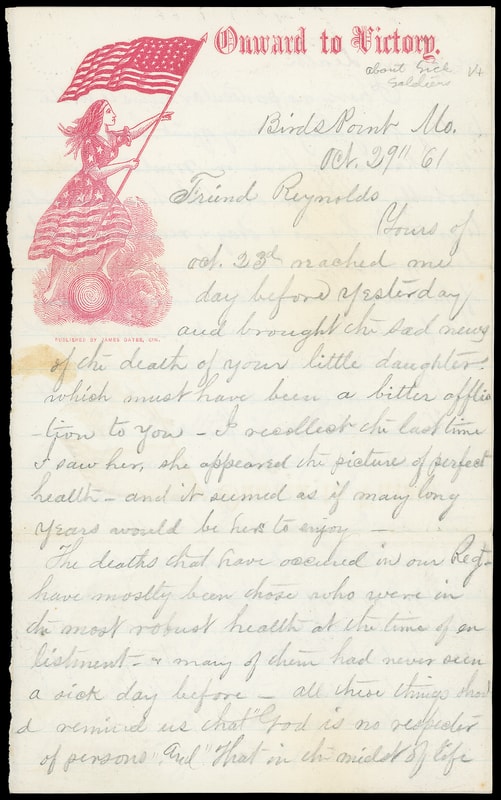 Onward to Victory.
about Sick
Soldiers
Birds Point Mo.
Oct. 29" 61
Friend Reynolds
Yours of
oct. 23d reached me
day before yesterday
and brought the sad news
PUBLISHED BY JAMES GATES, CIN.
of the death of your little daughter.
which must have been a bitter afflic
-tion to you – I recollect the last time
I saw her, she appeared the picture of perfect
health – and it seemed as if many long
years would be hers to enjoy —
The deaths that have occured in our Regt-
have mostly been those who were in
the most robust health at the time of en
listment – & many of them had never seen
a sick day before – all these things shoul
d remind us that "God is no respecter
of persons" And "That in the midst of life